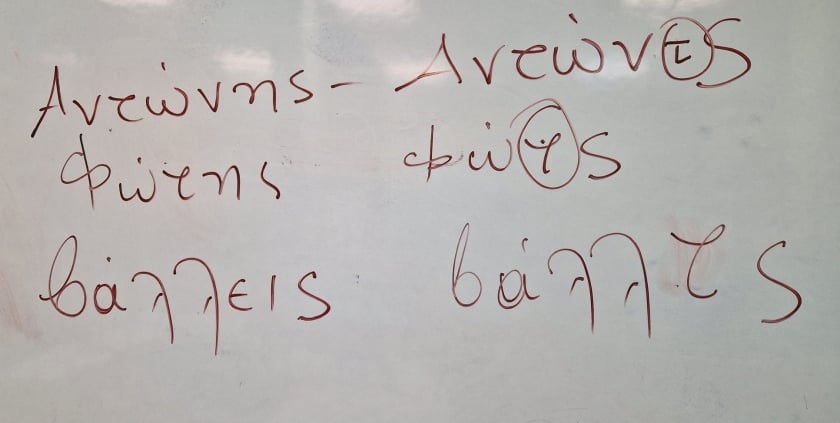 Αντώνης - Αντώντς
Φώτης φώτς
βάλλεις βάλλτς